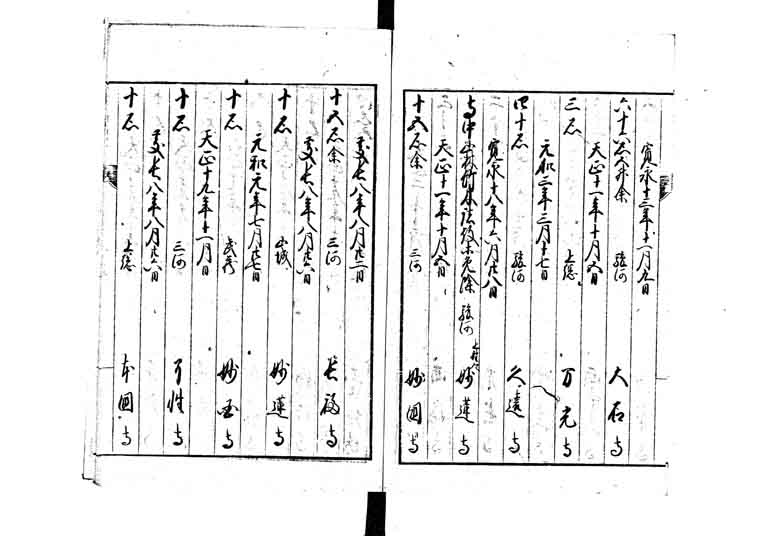 寛永十三年十一月九日
六十六石余 駿河 大石寺
天正十一年十月五日
三石 上総 万光寺
元和二年三月十七日
四十石 駿河 久遠寺
寛永十八年六月廿八日
寺中山林竹木諸役等免除 駿河 妙蓮寺
天正十一年十月五日
十五石余 三河 妙国寺
慶長八年八月廿二日
十五石余 三河 長福寺
慶長八年八月廿六日
十石 山城 妙蓮寺
元和元年七月廿七日
十石 武蔵 妙国寺
天正十九年十一月日
十石 三河 了性寺
慶長八年八月廿六日
十石 上総 本圀寺